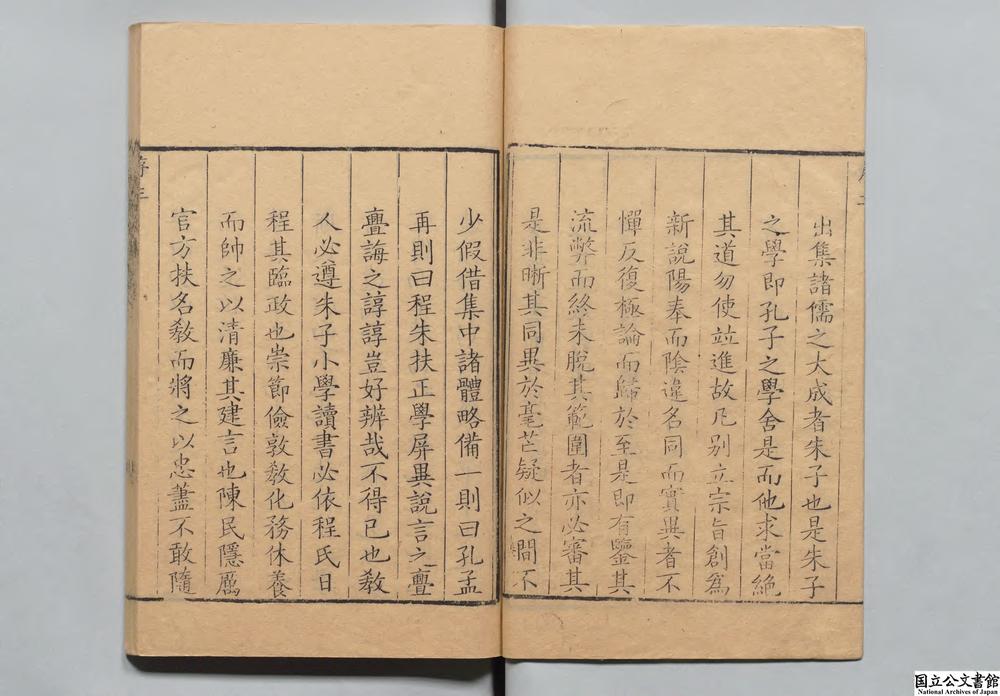 出集諸儒之大成者朱子也是朱子
之學即孔子之學舍是而他求當絕
其道勿使竝進故凡別立宗旨創爲
新說陽奉而陰違名同而實異者不
憚反復極論而歸於至是即有鑒其
流弊而終未脫其範圍者亦必審其
是非晰其同異於毫芒疑似之間不
少假借集中諸體略備一則曰孔孟
再則曰程朱扶正學屏異說言之亹
亹誨之諄諄豈好辨哉不得已也敎
人必遵朱子小學讀書必依程氏日
程其臨政也崇節儉敦敎化務休養
而帥之以清廉其建言也陳民隱厲
官方扶名敎而將之以忠藎不敢隨
序三
国立公文書館
National Archives of Japan